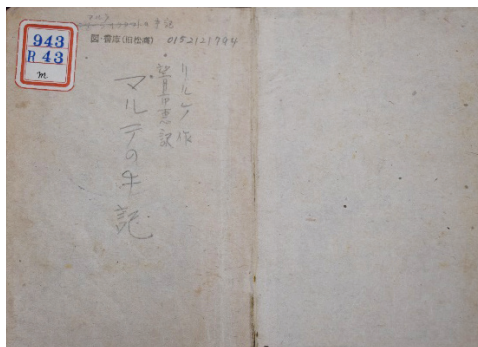 の手記
943
R 43
m
図・書庫(旧松高) 0152121794
リルケ作
望月市恵訳
マルテの手記